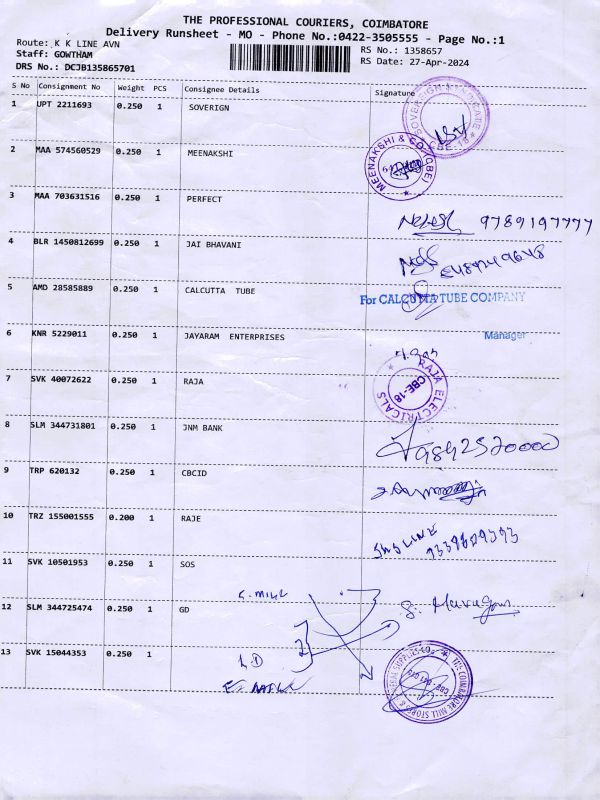 THE PROFESSIONAL COURIERS, COIMBATORE
Delivery Runsheet - MO - Phone No.:0422-3505555 - Page No.:1
Route: K K LINE AVN
Staff: GOWTHAM
DRS No.: DCJB135865701
RS No.: 1358657
RS Date: 27-Apr-2024
S No Consignment No Weight PCS Consignee Details Signature
1 UPT 2211693 0.250 1 SOVERIGN
CBE-18
2 MAA 574560529 0.250 1 MEENAKSHI
MEENAKSHI & CO (CBE)
3 MAA 703631516 0.250 1 PERFECT
9789197777
4 BLR 1450812699 0.250 1 JAI BHAVANI
5 AMD 28585889 0.250 1 CALCUTTA TUBE
For CALCUTTA TUBE COMPANY
6 KNR 5229011 0.250 1 JAYARAM ENTERPRISES
Manager
7 SVK 40072622 0.250 1 RAJA
RAJA ELECTRICALS
CBE-18
8 SLM 344731801 0.250 1 JNM BANK
9 TRP 620132 0.250 1 CBCID
10 TRZ 155001555 0.200 1 RAJE
11 SVK 10501953 0.250 1 SOS
12 SLM 344725474 0.250 1 GD
S. Murugan
13 SVK 15044353 0.250 1
THE COIMBATORE MILL STORES &